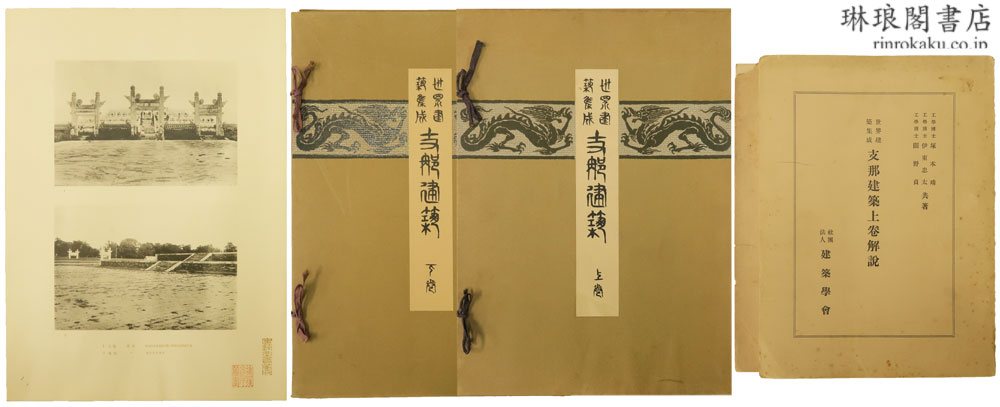 琳琅閣書店
rinrokaku.co.jp
世界建築集成
支那建築
下卷
世界建築集成
支那建築
上卷
工學博士 塚本靖
工學博士 伊東忠太 共著
工學博士 關野貞
世界建築集成 支那建築上卷解說
社團法人 建築學會